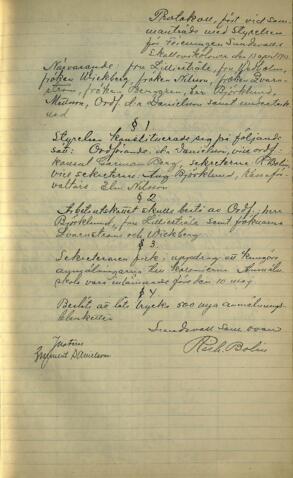 Protokoll, fört vid sam-
manträde med Styrelsen
för Föreningen Sundsvalls
Skollovskolonier den 13 april
Närvarande: fru Lilliestråle, fru
fröken Wickberg, fröken Nilson, fröken Svarn-
ström, fröken Berggren, herr Björklund,
Ordf. d:r Danielson samt underteck-
nad
§ 1
Styrelsen konstituerade sig på följande
sätt: Ordförande d:r Danielson, vice ordf.
konsul Herman Berg, sekreterare R. Bolin
vice sekreterare Aug Björklund, kassaför-
valtare Elin Nilsson
§ 2
Arbetsutskottet skulle bestå av Ordf., herr
Björklund, fru Lilliestråle samt fröknarna
Svarnström och Wickberg.
§ 3.
Sekreteraren fick i uppdrag att kungöra
anmälningarna till kolonierna. Anmäl.
skola vara inlämnade före den 10 maj
§ 4
Beslöts att låta trycka 500 nya anmälnings-
blanketter
Sundsvall som ovan
Rich. Bolin
Justeras
Danielson